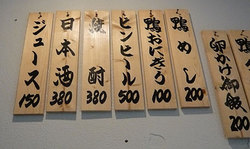 卵かけ御飯 200
鴨めし 200
鴨おにぎり 100
ビンビール 500
焼酎 380
日本酒 380
ジュース 150